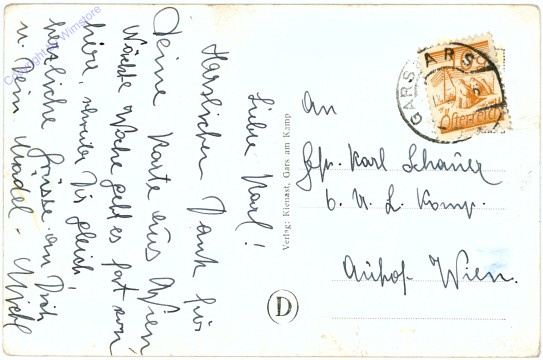 Liebe Karl!
Herzlichen Dank für
Deine Karte aus Wien
Nächste Woche geht es fort von
hier, schreibe Dir gleich!
herzliche Grüsse an Dich
u. Dein Mädel.
Verlag: Kienast, Gars am Kamp
D
An
Gfr. Karl Schauer
6. U. L. Komp.
Auhof-Wien.
GARS
GARS
Österreich
Copyright by Wimstore